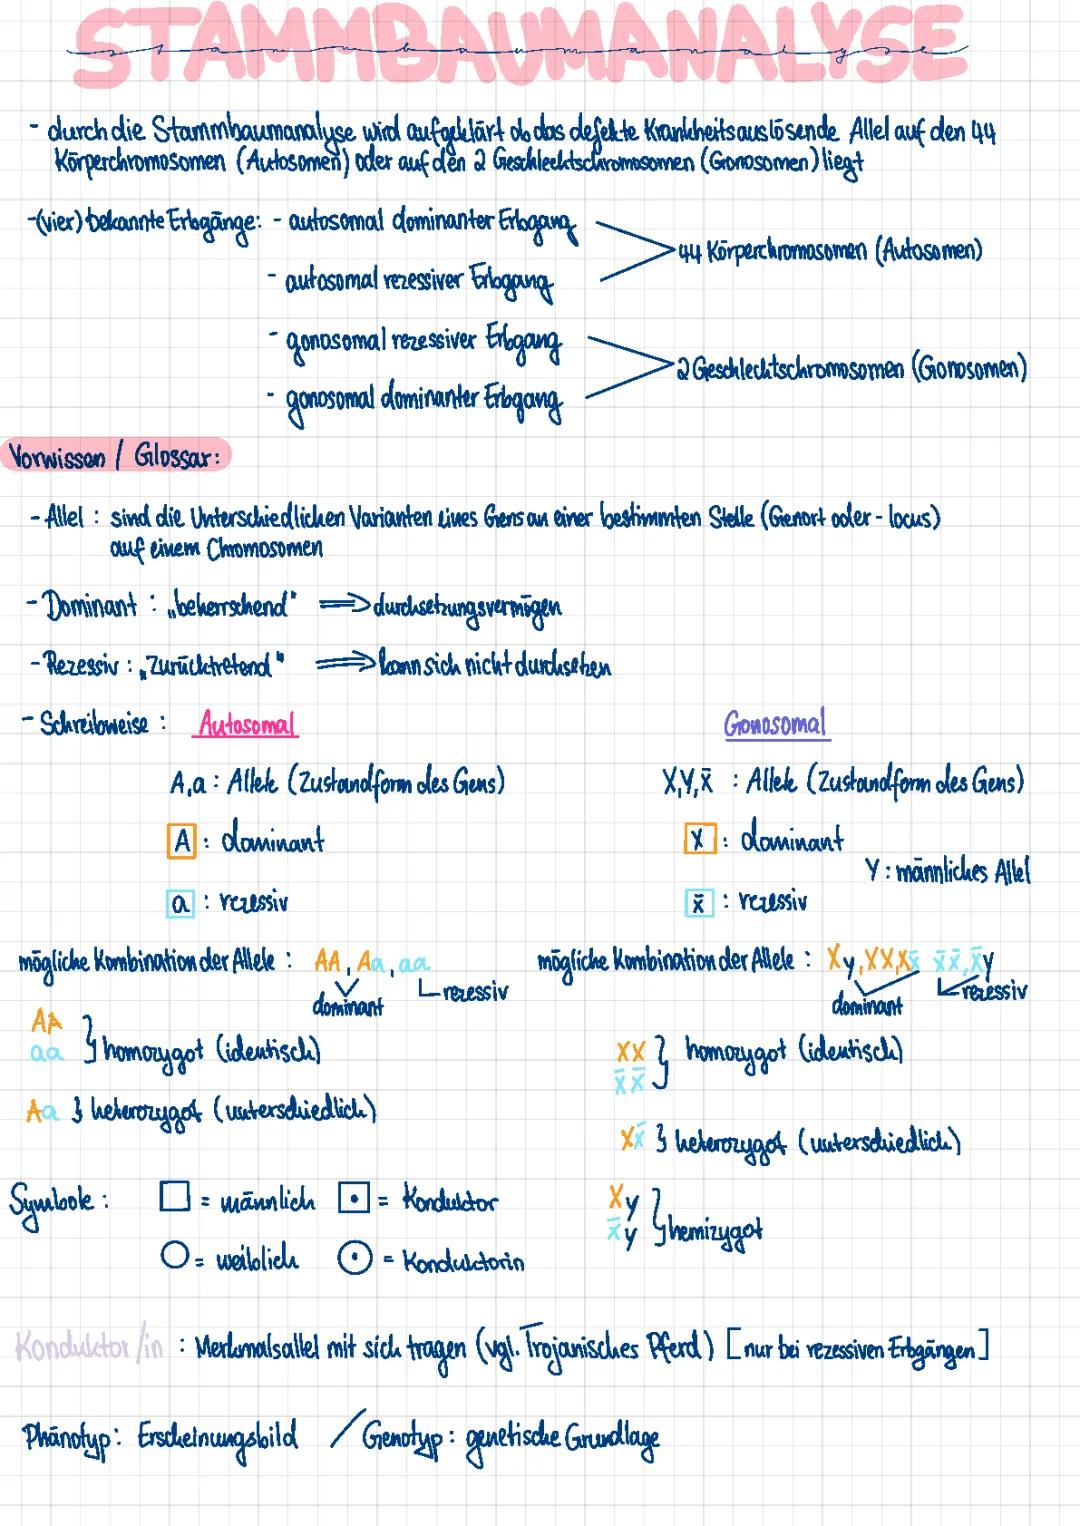 STAMMBAUMANALYSE
stammbaumanalyse
- durch die Stammbaumanalyse wird aufgeklärt ob das defekte Krankheitsauslösende Allel auf den 44
Körperchromosomen (Autosomen) oder auf den 2 Geschlechtschromosomen (Gonosomen) liegt
-(vier) bekannte Erbgänge: - autosomal dominanter Erbgang
44 Körperchromosomen (Autosomen)
- autosomal rezessiver Erbgang
- gonosomal rezessiver Erbgang
2 Geschlechtschromosomen (Gonosomen)
- gonosomal dominanter Erbgang
Vorwissen / Glossar:
- Allel : sind die Unterschiedlichen Varianten eines Gens an einer bestimmten Stelle (Genort oder - locus)
auf einem Chromosomen
- Dominant : „beherrschend" ⟹ durchsetzungsvermögen
- Rezessiv : „Zurücktretend" ⟹ kann sich nicht durchsetzen
- Schreibweise : Autosomal Gonosomal
A,a : Allele (Zustandform des Gens) X,Y,x̄ : Allele (Zustandform des Gens)
A : dominant X : dominant
Y : männliches Allel
a : rezessiv x̄ : rezessiv
mögliche Kombination der Allele : AA, Aa, aa mögliche Kombination der Allele : Xy, XX, Xx̄ x̄x̄, x̄y
dominant rezessiv dominant rezessiv
AA
aa } homozygot (identisch) XX } homozygot (identisch)
x̄x̄
Aa } heterozygot (unterschiedlich)
Xx̄ } heterozygot (unterschiedlich)
Symbole : □ = männlich ⊡ = Konduktor Xy
x̄y } hemizygot
○ = weiblich ⊙ = Konduktorin
Konduktor/in : Merkmalsallel mit sich tragen (vgl. Trojanisches Pferd) [nur bei rezessiven Erbgängen]
Phänotyp : Erscheinungsbild / Genotyp : genetische Grundlage